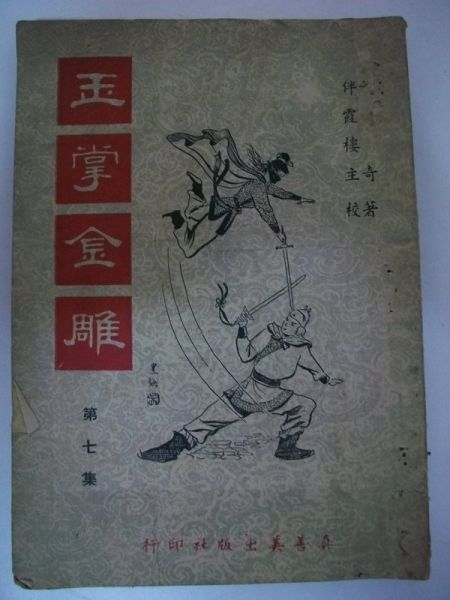 奇著
伴霞樓主校
玉掌金雕
第七集
真善美出版社印行